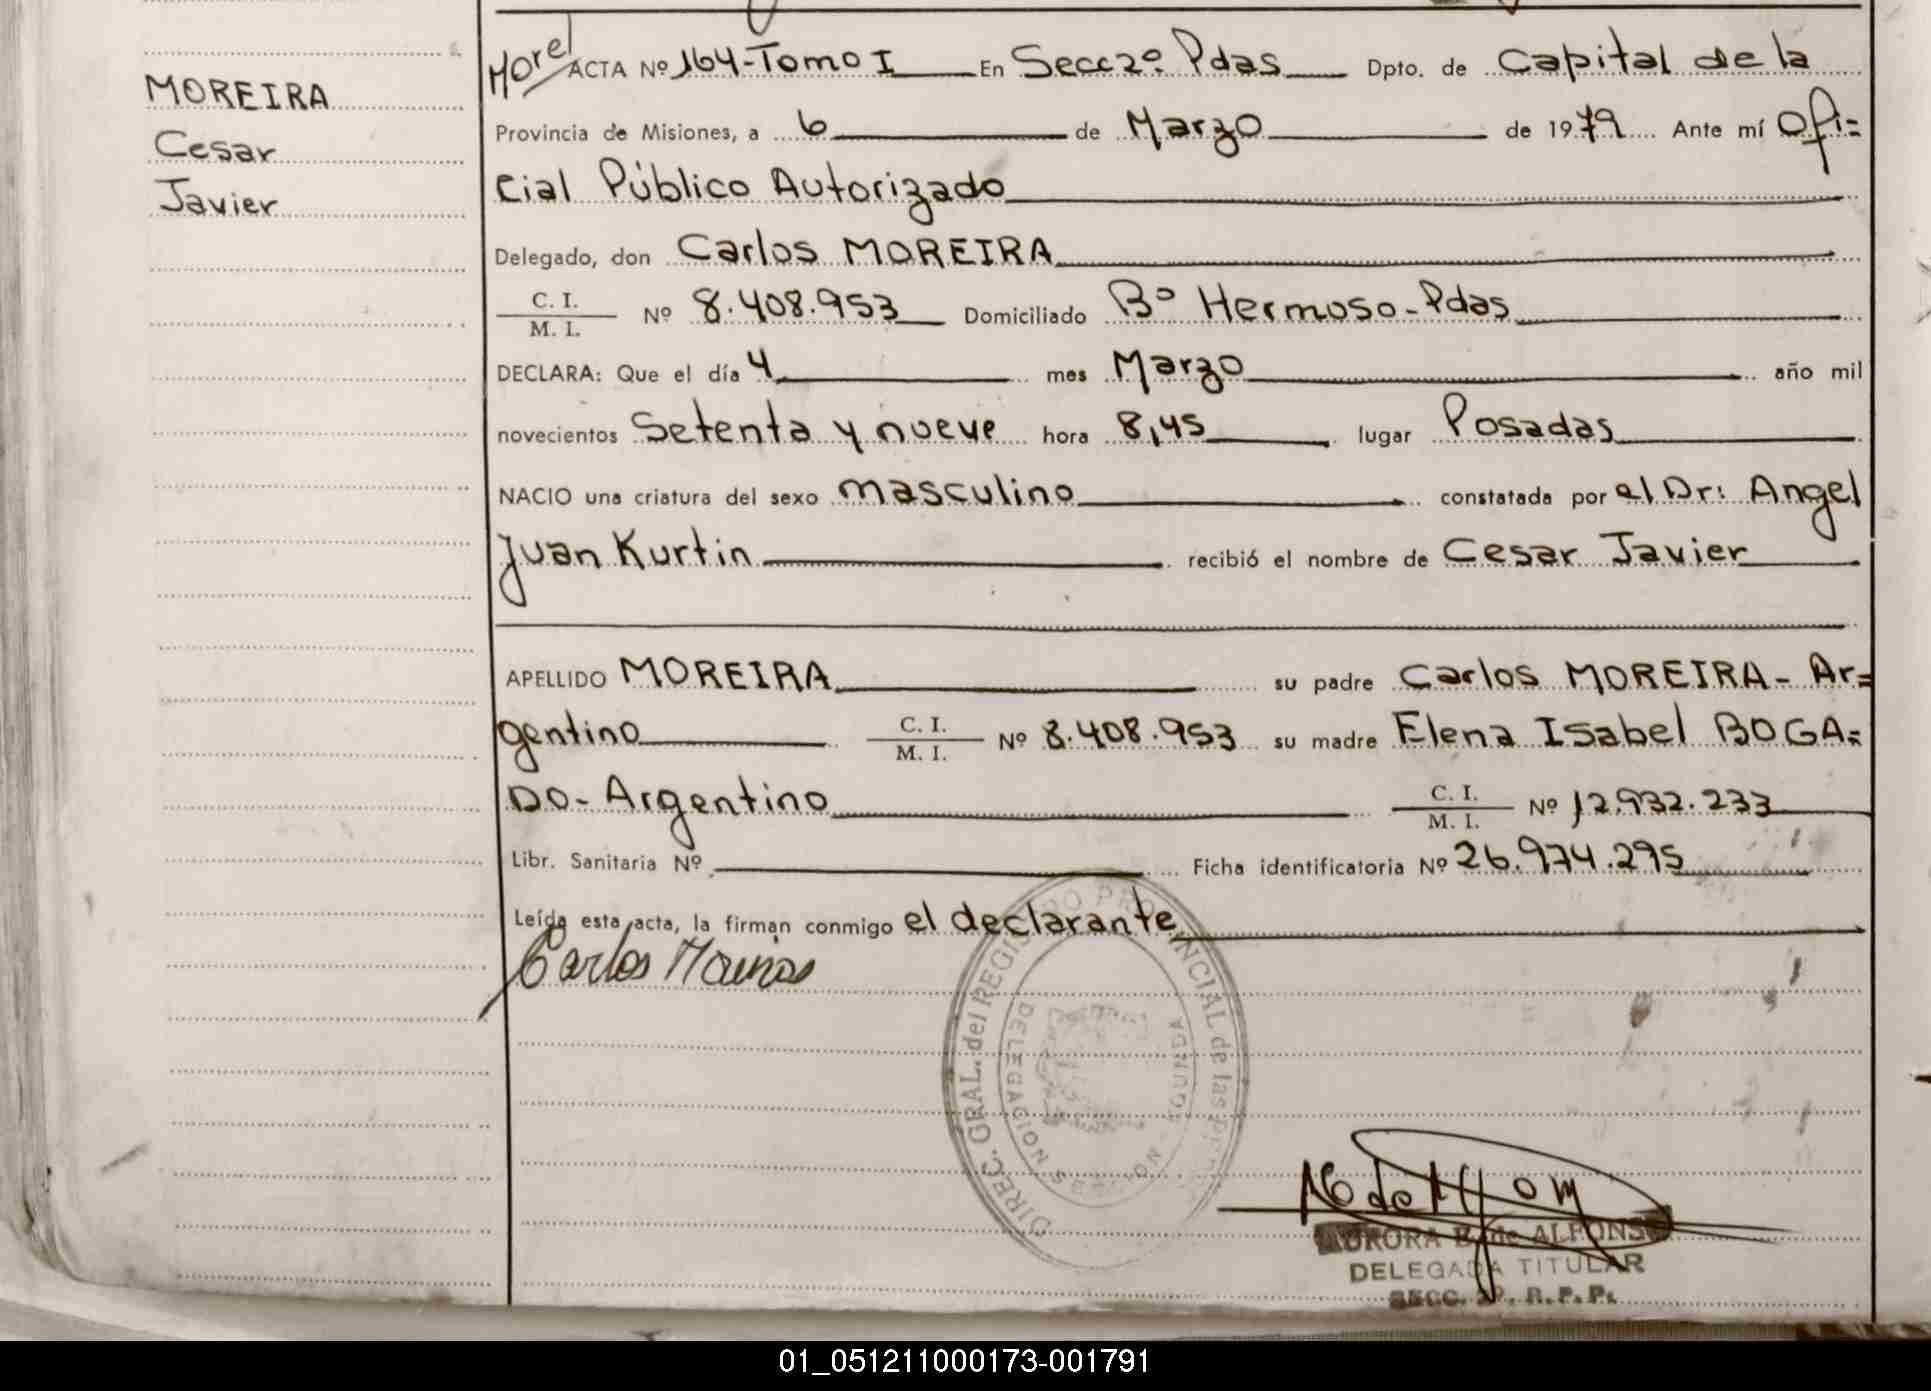 MOREIRA
Cesar
Javier
Morel ACTA Nº 164-Tomo I En Secc 2º Pdas Dpto. de Capital de la
Provincia de Misiones, a 6 de Marzo de 1979 Ante mí Ofi=
cial Público Autorizado
Delegado, don Carlos MOREIRA
C. I.
M. I. Nº 8.408.953 Domiciliado Bº Hermoso-Pdas
DECLARA: Que el día 4 mes Marzo año mil
novecientos Setenta y nueve hora 8,45 lugar Posadas
NACIO una criatura del sexo masculino constatada por el Dr: Angel
Juan Kurtin recibió el nombre de Cesar Javier
APELLIDO MOREIRA su padre Carlos MOREIRA- Ar=
gentino C. I. M. I. Nº 8.408.953 su madre Elena Isabel BOGA=
DO- Argentino C. I. M. I. Nº 12.932.233
Libr. Sanitaria Nº Ficha identificatoria Nº 26.974.295
Leída esta acta, la firman conmigo el declarante
Carlos
DIREC. GRAL. del REGISTRO PROVINCIAL de las
DELEGACION
AURORA B. de ALFONSO
DELEGADA TITULAR
SECC. 2º. R.P.P.
01_051211000173-001791